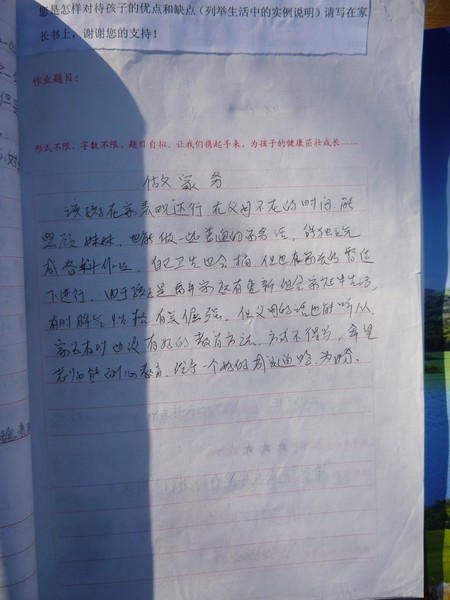 您是怎样对待孩子的优点和缺点（列举生活中的实例说明）请写在家
长书上，谢谢您的支持！
作业题目：
形式不限、字数不限、题目自拟、让我们携起手来，为孩子的健康茁壮成长……
做家务
该孩在家表现还行，在父母不在的时间能
照顾妹妹，也能做一些普通的家务活，能独立完
成各科作业，自己卫生也会搞，但也在家长的督促
下进行，由于孩子是
有时脾气性格有点倔强，但父母的话也能听从，
家长有时也没有好的教育方法，方式不得当，希望
老师能耐心教育，给予一个好的